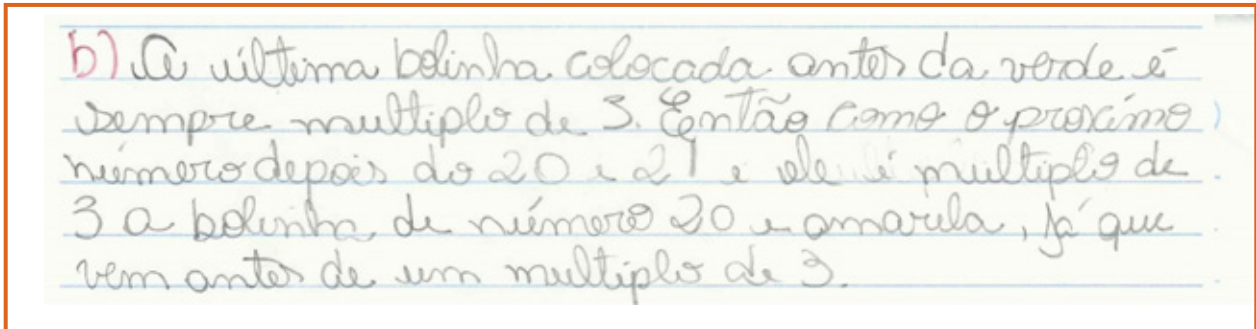 b) A última bolinha colocada antes da verde é
sempre multiplo de 3. Então como o proximo
número depois do 20 é 21 e ele é multiplo de
3 a bolinha de número 20 é amarela, já que
vem antes de um multiplo de 3.